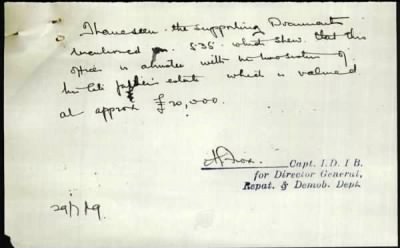 I have seen the supporting Documents
mentioned on S35 which shew that this
Officer is a trustee with his brother of
his late father's estate which is valued
at approx £20,000.
Capt. I. D. I B.
for Director General,
Repat. & Demob. Dept.
29/7/19